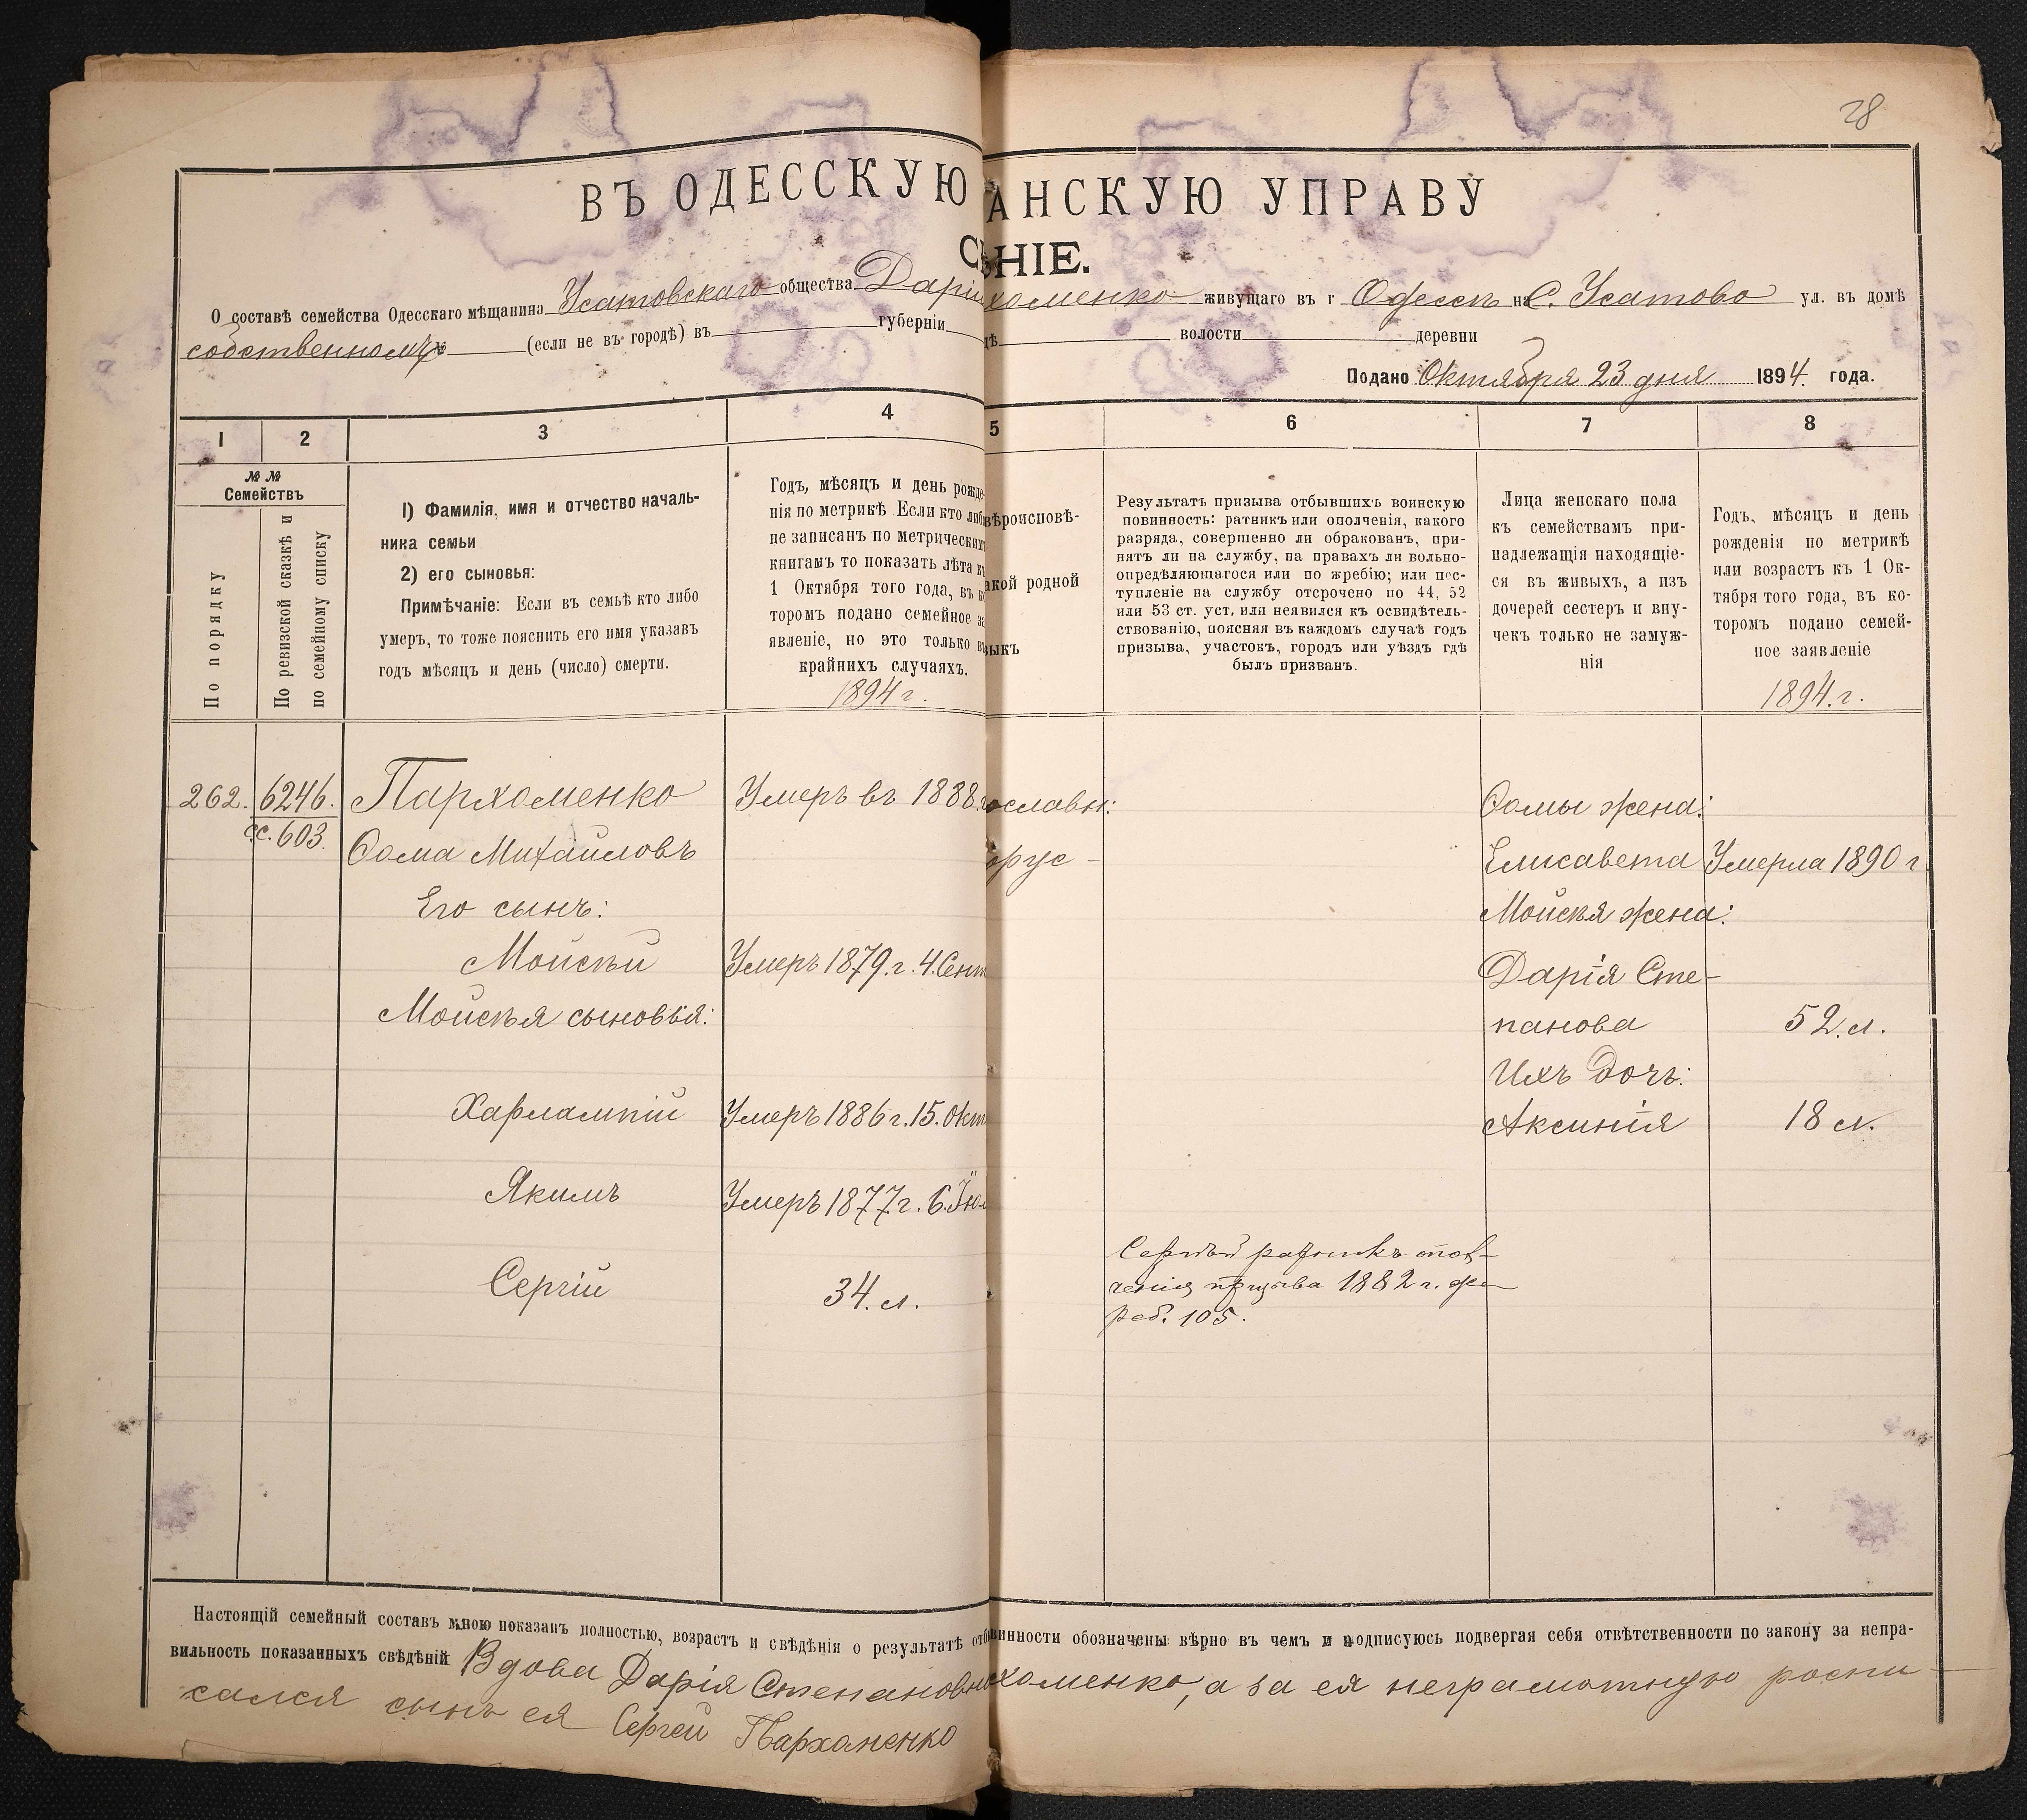 28
ВЪ ОДЕССКУЮ АНСКУЮ УПРАВУ
НІЕ.
О составѣ семейства Одесскаго мѣщанина Усатовскаго общества Дарі хоменко живущаго въ г Одессѣ на С. Усатово ул. въ домѣ
собственномъ (если не въ городѣ) въ губерніи волости деревни
Подано Октября 23 дня 1894 года.
1 2 3 4 5 6 7 8
№ №
Семействъ
По порядку
По ревизской сказкѣ и
по семейному списку
1) Фамилія, имя и отчество началь-
ника семьи
2) его сыновья:
Примѣчаніе: Если въ семьѣ кто либо
умеръ, то тоже пояснить его имя указавъ
годъ мѣсяцъ и день (число) смерти.
Годъ, мѣсяцъ и день рожде-
нія по метрикѣ Если кто либ
не записанъ по метрическим
книгамъ то показать лѣта к
1 Октября того года, въ к
торомъ подано семейное за
явленіе, но это только в
крайнихъ случаяхъ.
1894 г.
вѣроисповѣ-
акой родной
зыкъ
Результатъ призыва отбывшихъ воинскую
повинность: ратникъ или ополченія, какого
разряда, совершенно ли обракованъ, при-
нятъ ли на службу, на правахъ ли вольно-
опредѣляющагося или по жребію; или пос-
тупленіе на службу отсрочено по 44, 52
или 53 ст. уст. или неявился къ освидѣтель-
ствованію, поясняя въ каждомъ случаѣ годъ
призыва, участокъ, городъ или уѣздъ гдѣ
былъ призванъ.
Лица женскаго пола
къ семействамъ при-
надлежащія находящіе-
ся въ живыхъ, а изъ
дочерей сестеръ и вну-
чекъ только не замуж-
нія
Годъ, мѣсяцъ и день
рожденія по метрикѣ
или возрастъ къ 1 Ок-
тября того года, въ ко-
торомъ подано семей-
ное заявленіе
1894. г.
262. 6246. Пархоменко Умеръ въ 1888. ославн: Ѳомы жена:
сс. 603. Ѳома Михайловъ орус - Елисавета Умерла 1890 г
Его сынъ: Мойсѣя жена:
Мойсѣй Умеръ 1879. г. 4. Сент Дарія Сте-
Мойсѣя сыновья: панова 52. л.
Ихъ дочь:
Харлампій Умеръ 1886 г. 15. Окт Аксинія 18 л.
Якимъ Умеръ 1877 г. 6. Їюл
Сергій 34. л.
Сергѣй ратникъ опол-
ченія призыва 1882 г. же-
реб. 105.
Настоящій семейный составъ мною показанъ полностью, возрастъ и свѣдѣнія о результатѣ отб инности обозначены вѣрно въ чемъ и подписуюсь подвергая себя отвѣтственности по закону за непра-
вильность показанныхъ свѣдѣній Вдова Дарія Степанов хоменко, а за ея неграмотную роспи-
сался сынъ ея Сергей Пархоменко